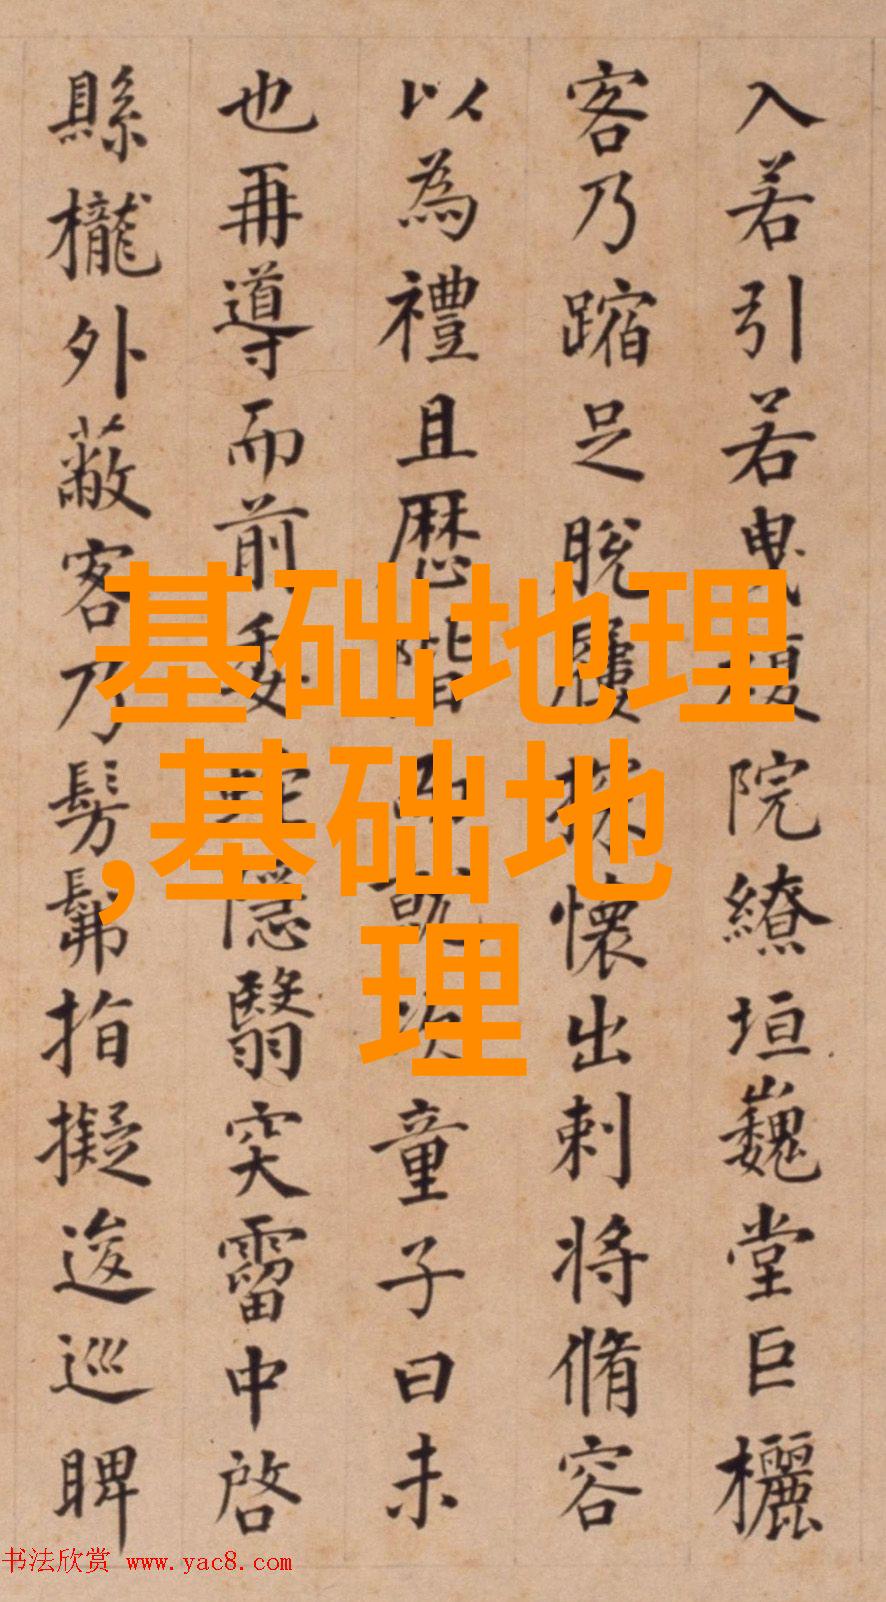 入若引若曳複院繚垣巍堂巨欐
客乃蹜足脫屨探懷出刺將脩容
以為禮且歷階而就次童子曰未
也再導而前委蛇隱翳突霤中啓
縣櫳外蔽客乃髣髴指擬逡巡睥
基础地理
,基础地
理
书法欣赏 www.yac8.com